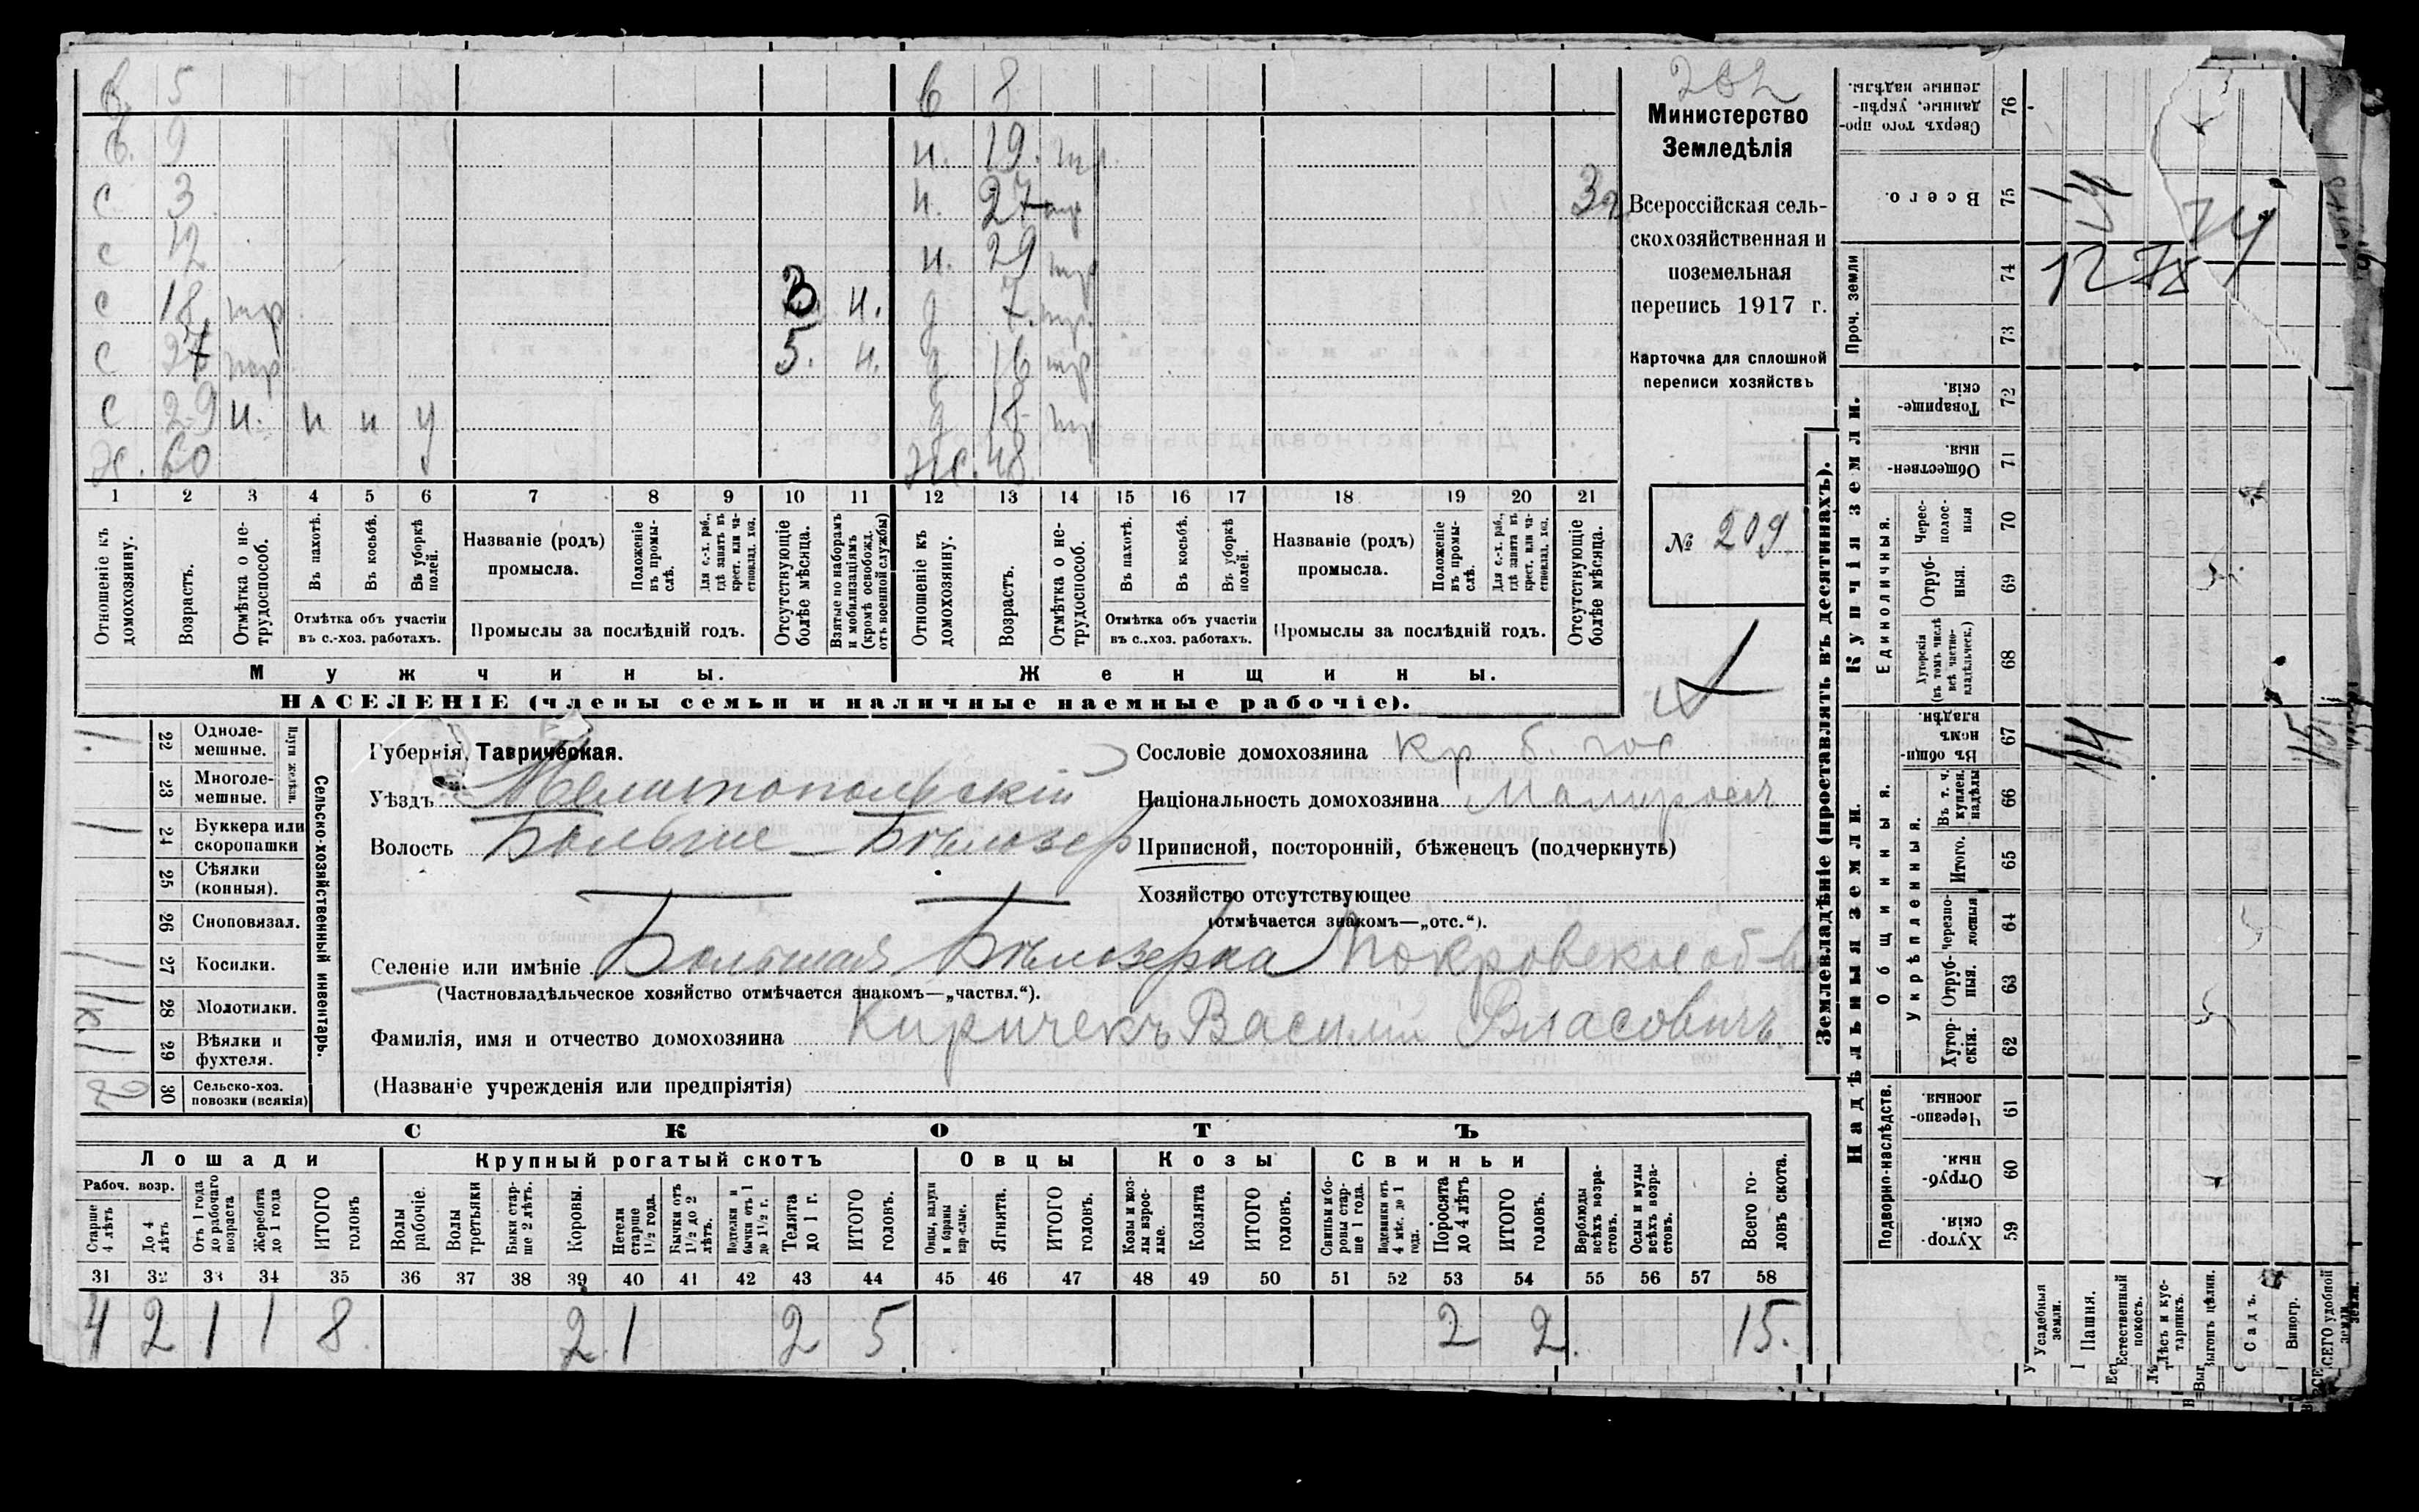 в. 5 в 8
в. 9 н. 19. тр.
с 3 н. 27 тр
с 12 н. 29 тр
с 18. тр 3 н. д 7. тр.
с 27 тр 5. н. д 16 тр
с 29 н. н н у д. 18 тр
Ж. 60 Ж. 48
1 2 3 4 5 6 7 8 9 10 11 12 13 14 15 16 17 18 19 20 21
Отношеніе къ домохозяину.
Возрастъ.
Отмѣтка о нетрудоспособ.
Въ пахотѣ.
Въ косьбѣ.
Въ уборкѣ полей.
Отмѣтка объ участіи въ с.-хоз. работахъ.
Названіе (родъ) промысла.
Положеніе въ промыслѣ.
Для с.-х. раб., гдѣ занятъ въ крест. или частновлад. хоз.
Промыслы за послѣдній годъ.
Отсутствующіе болѣе мѣсяца.
Взятые по наборамъ и мобилизаціямъ (кромѣ освобожд. отъ военной службы)
Отношеніе къ домохозяину.
Возрастъ.
Отмѣтка о нетрудоспособ.
Въ пахотѣ.
Въ косьбѣ.
Въ уборкѣ полей.
Отмѣтка объ участіи въ с.-хоз. работахъ.
Названіе (родъ) промысла.
Положеніе въ промыслѣ.
Для с.-х. раб., гдѣ занята въ крест. или частновлад. хоз.
Промыслы за послѣдній годъ.
Отсутствующіе болѣе мѣсяца.
Мужчины. Женщины.
НАСЕЛЕНІЕ (члены семьи и наличные наемные рабочіе).
Министерство
Земледѣлія
Всероссійская сель-
скохозяйственная и
поземельная
перепись 1917 г.
Карточка для сплошной
переписи хозяйствъ
№ 209.
22 Однолемешные.
23 Многолемешные.
Плуги желѣзн.
24 Буккера или скоропашки
25 Сѣялки (конныя).
26 Сноповязал.
27 Косилки.
28 Молотилки.
29 Вѣялки и фухтеля.
30 Сельско-хоз. повозки (всякія)
Сельско-хозяйственный инвентарь.
Губернія Таврическая.
Уѣздъ Мелитопольскій
Волость Больше-Бѣлозер
Сословіе домохозяина кр. б. гос
Національность домохозяина Малиросъ
Приписной, посторонній, бѣженецъ (подчеркнуть)
Хозяйство отсутствующее
(отмѣчается знакомъ—„отс.“).
Селеніе или имѣніе Большая Бѣлозерка Покровское об-во
(Частновладѣльческое хозяйство отмѣчается знакомъ—„частвл.“).
Фамилія, имя и отчество домохозяина Киричекъ Василій Власовичъ.
(Названіе учрежденія или предпріятія)
СКОТЪ
Лошади Крупный рогатый скотъ Овцы Козы Свиньи
Рабоч. возр.
Старше 4 лѣтъ
До 4 лѣтъ
Отъ 1 года до рабочаго возраста
Жеребята до 1 года
ИТОГО головъ
Волы рабочіе.
Волы третьяки
Быки старше 2 лѣтъ.
Коровы.
Нетели старше 1½ года.
Бычки отъ 1½ до 2 лѣтъ.
Телята до 1 г.
ИТОГО головъ.
Ягнята.
ИТОГО головъ.
Козы и козлы взрослые.
Козлята
ИТОГО головъ.
Свиньи и боровы старше 1 года.
Подсвинки отъ 4 мѣс. до 1 года.
Поросята до 4 лѣтъ
ИТОГО головъ.
Верблюды всѣхъ возрастовъ.
Ослы и мулы всѣхъ возрастовъ.
Всего головъ скота.
31 32 33 34 35 36 37 38 39 40 41 42 43 44 45 46 47 48 49 50 51 52 53 54 55 56 57 58
4 2 1 1 8 2 1 2 5 2 2. 15.
Землевладѣніе (проставлять въ десятинахъ).
Купчія земли.
Надѣльныя земли.
Сверхъ того проданные, укрѣпленные надѣлы. 76
Всего. 75
Проч. земли 74 73
Товарищескія. 72
Общественныя 71
Единоличныя.
Чересполосныя 70
Отрубныя. 69
Хуторскія (въ томъ числѣ всѣ частновладѣльческ.) 68
Общинныя.
Въ общинномъ владѣн. 67
Укрѣпленныя.
Въ т. ч. куплен. надѣлы 66
Итого. 65
Черезполосныя 64
Отрубныя. 63
Хуторскія. 62
Подворно-наслѣдств.
Черезполосныя 61
Отрубныя. 60
Хуторскія. 59
Усадебныя земли.
Пашня.
Естественный покосъ.
Лѣсъ и кустарникъ.
Выгонъ цѣлин.
Садъ.
Виногр.